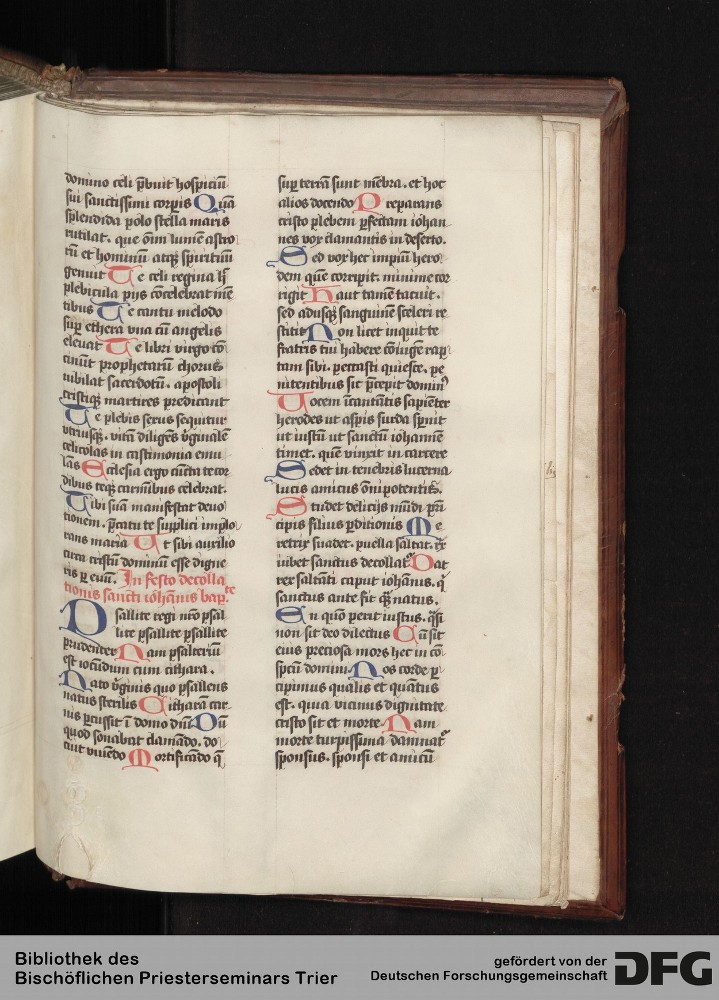 domino celi p̄buit hospiciū
sui sanctissimi corꝑis Qua
splendida polo stella maris
rutilat. que om̄i lumē astro
rū et hominū atqꝫ spirituū
genuit Te celi regina h̄
plebicula pijs cōcelebrat mē
tibus Te cantu melodo
suꝑ ethera una cū angelis
eleuat Te libri virgo cō
cinūt prophetarū chorus
iubilat sacerdotū. apostoli
cristiqꝫ martires predicant
Te plebis sexus sequitur
vtriusqꝫ. vitā diligēs v̄ginalē
celicolas in castimonia emu
lās Ecclesia ergo cūcta te cor
dibus teqꝫ carmībus celebrat.
Tibi suā manifestat deuo
tionem. p̄catu te supplici implo
rans maria Ut sibi auxilio
circa cristū dominū esse digne
ris ꝑ euū. In festo decolla
tionis sancti iohānis bap.te
Psallite regi nr̄o psal
lite psallite psallite
prudenter Nam psalteriū
est iocūdum cum cithara.
Nato v̄ginis quo psallens
natus sterilis Citharā car
nis ꝑcussit ī domo dn̄i Dū
quod sonabat clamādo. do
cuit viuēdo Mortificādo q̄
suꝑ terrā sunt mēbra. et hoc
alios docendo Preparans
cristo plebem ꝑfectam iohan
nes vox clamantis in deserto.
Sed vox hec impiū hero
dem quē corripit. minime cor
rigit Haut tamē tacuit.
sed adusqꝫ sanguinē sceleri re
stitit Non licet inquit te
fratris tui habere cōiugē rap
tam sibi. peccasti quiesce. pe
nitentibus sit p̄cepit dominꝰ
Uocem īcantātis sapiēter
herodes ut aspis surda sp̄nit
ut iustū ut sanctū iohannē
timet. quē vinxit in carcere
Sedet in tenebris lucerna
lucis amicus om̄ipotentis.
Studet delicijs mūdi pri
cipis filius ꝑditionis Me
retrix suadet. puella saltat. rex
iubet sanctus decollat᷑ Dat
rex saltāti caput iohānis. q̄
sanctus ante fit q̄ꝫ natus.
En quō perit iustus. q̄si
non sit deo dilectus Cū sit
eius preciosa mors hec in cō
spectu domini. Nos corde ꝑ
cipimus qualis et quātus
est. quia vicinus dignitate
cristo sit et morte Nam
morte turpissima damnat᷑
sponsus. sponsi et amicū
Bibliothek des
Bischöflichen Priesterseminars Trier
gefördert von der
Deutschen Forschungsgemeinschaft
DFG